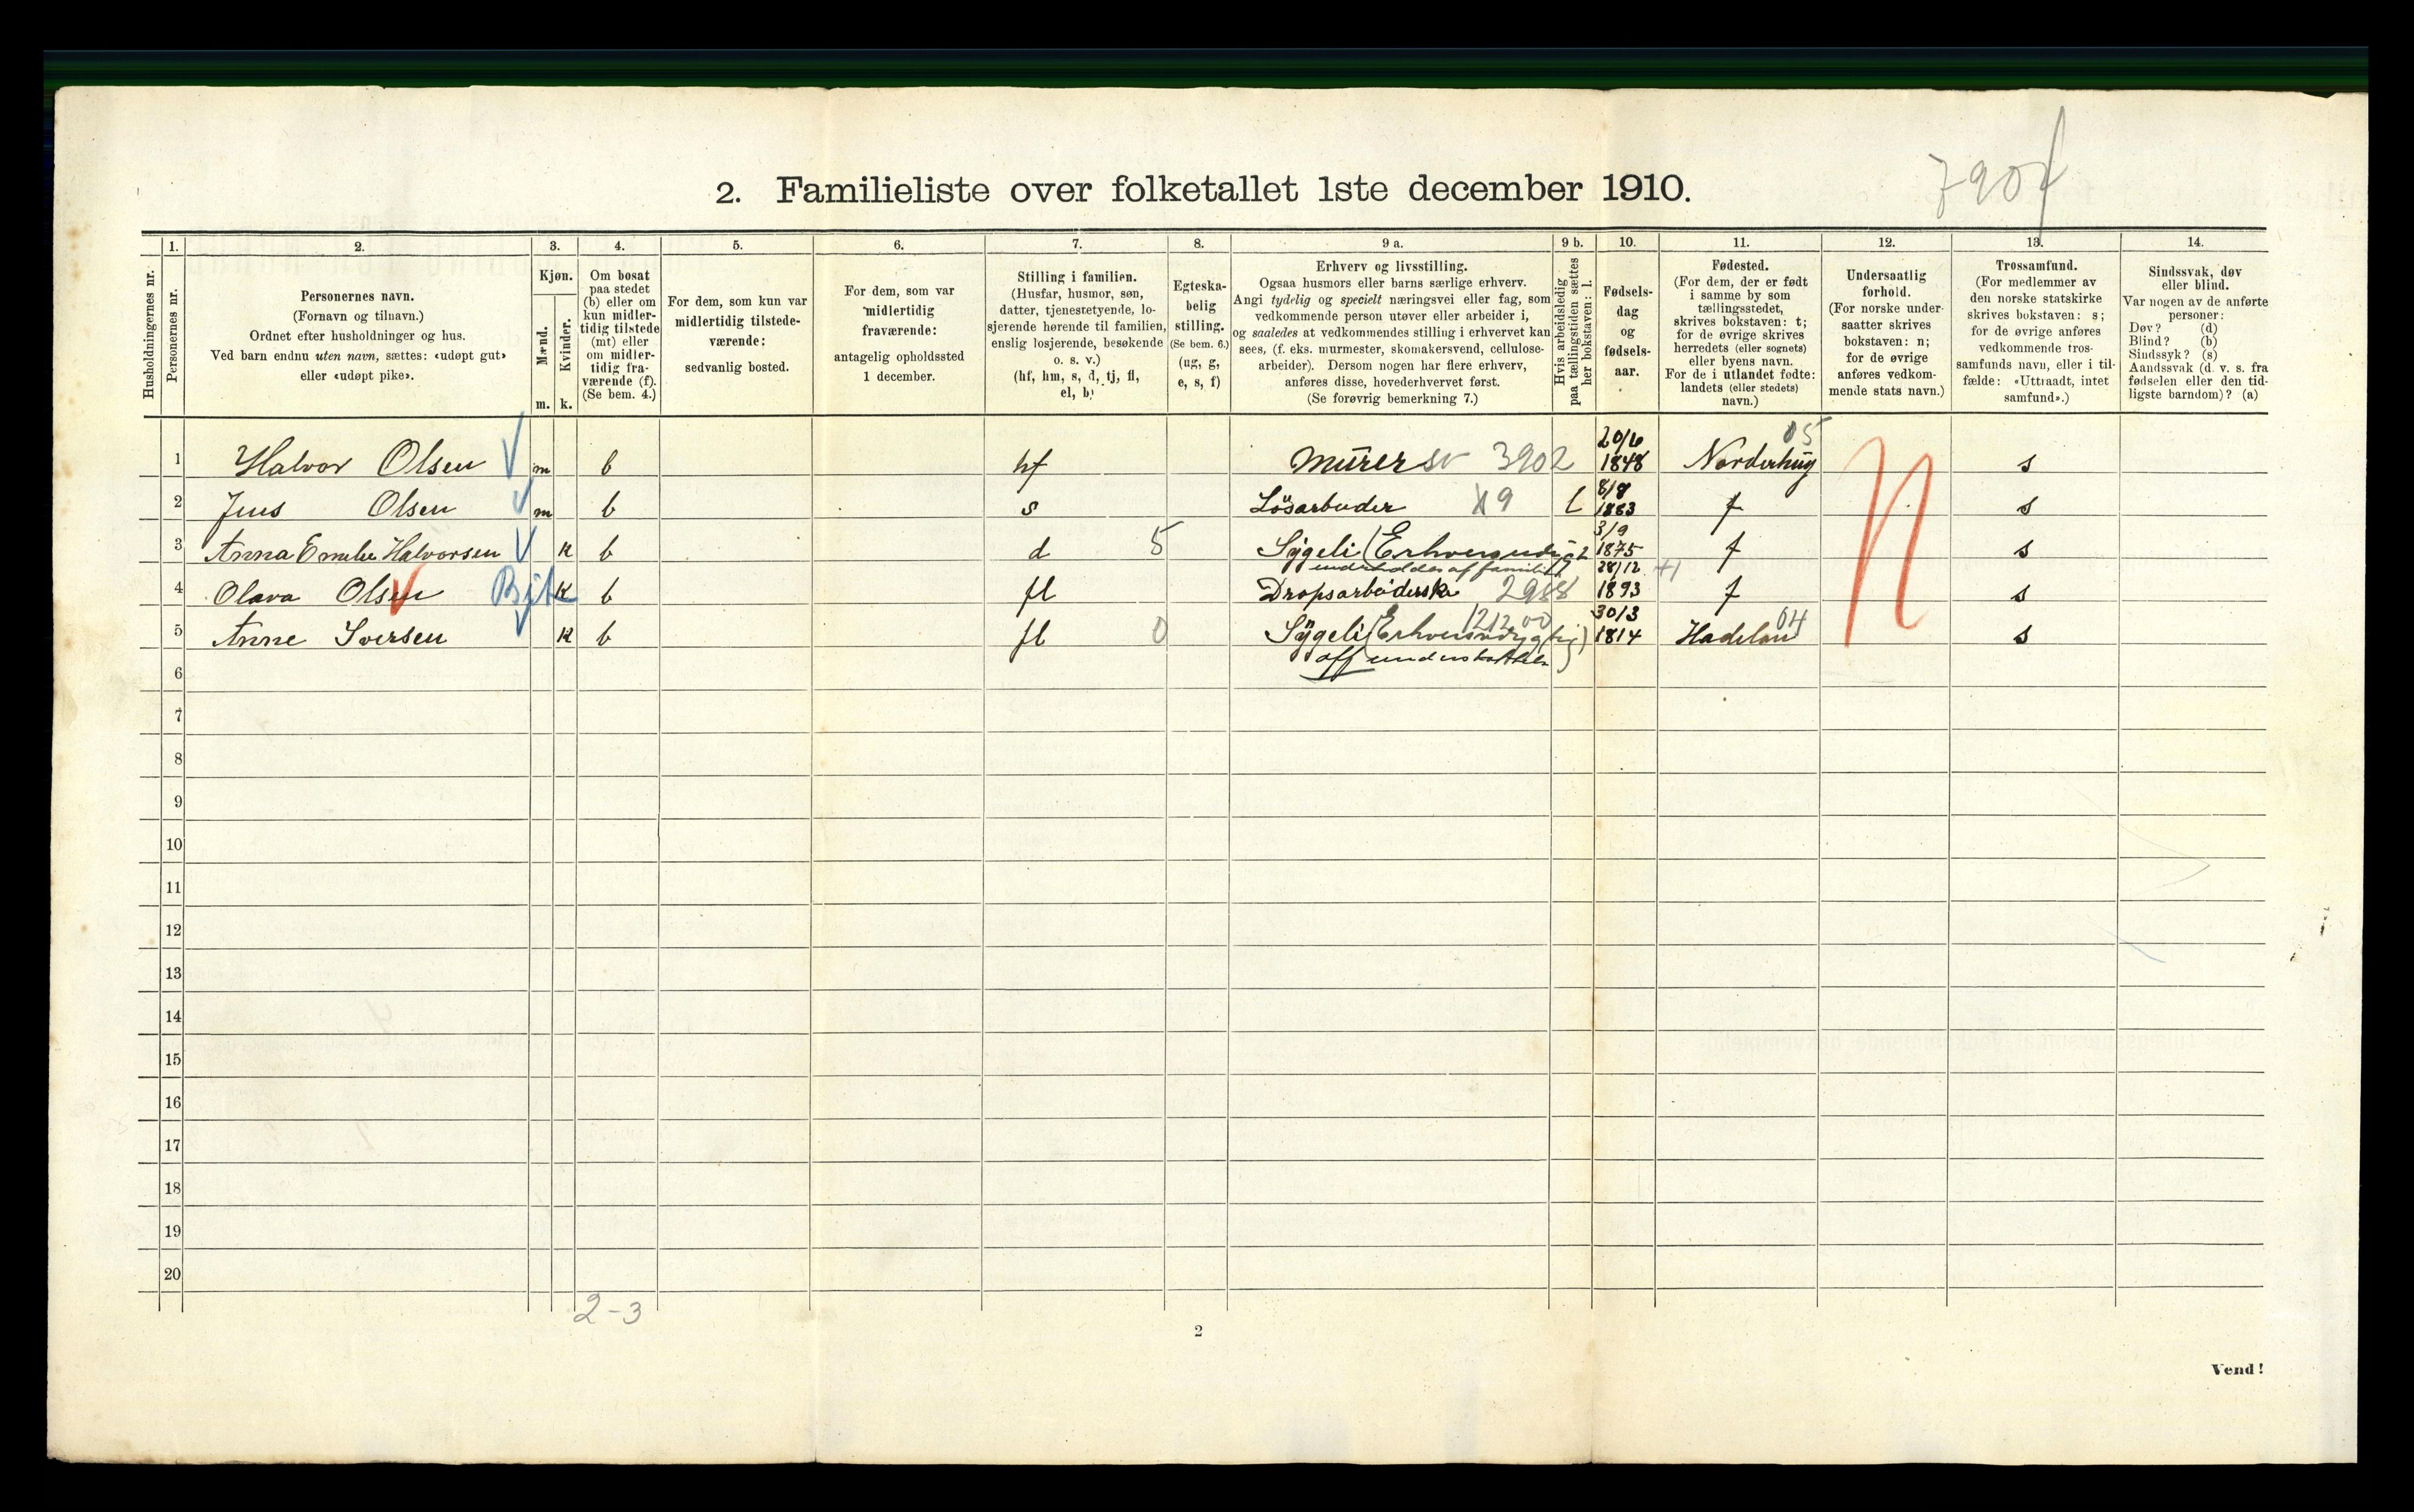 7904
2. Familieliste over folketallet 1ste december 1910.
Husholdningernes nr.
1. Personernes nr.
2. Personernes navn. (Fornavn og tilnavn.) Ordnet efter husholdninger og hus. Ved barn endnu uten navn, sættes: «udøpt gut» eller «udøpt pike».
3. Kjøn. Mænd. m. Kvinder. k.
4. Om bosat paa stedet (b) eller om kun midlertidig tilstede (mt) eller om midlertidig fraværende (f). (Se bem. 4.)
5. For dem, som kun var midlertidig tilstedeværende: sedvanlig bosted.
6. For dem, som var midlertidig fraværende: antagelig opholdssted 1 december.
7. Stilling i familien. (Husfar, husmor, søn, datter, tjenestetyende, losjerende hørende til familien, enslig losjerende, besøkende o. s. v.) (hf, hm, s, d, tj, fl, el, b)
8. Egteskabelig stilling. (Se bem. 6.) (ug, g, e, s, f)
9 a. Erhverv og livsstilling. Ogsaa husmors eller barns særlige erhverv. Angi tydelig og specielt næringsvei eller fag, som vedkommende person utøver eller arbeider i, og saaledes at vedkommendes stilling i erhvervet kan sees, (f. eks. murmester, skomakersvend, cellulosearbeider). Dersom nogen har flere erhverv, anføres disse, hovederhvervet først. (Se forøvrig bemerkning 7.)
9 b. Hvis arbeidsledig paa tællingstiden sættes her bokstaven: l.
10. Fødselsdag og fødselsaar.
11. Fødested. (For dem, der er født i samme by som tællingsstedet, skrives bokstaven: t; for de øvrige skrives herredets (eller sognets) eller byens navn. For de i utlandet fødte: landets (eller stedets) navn.)
12. Undersaatlig forhold. (For norske undersaatter skrives bokstaven: n; for de øvrige anføres vedkommende stats navn.)
13. Trossamfund. (For medlemmer av den norske statskirke skrives bokstaven: s; for de øvrige anføres vedkommende trossamfunds navn, eller i tilfælde: «Uttraadt, intet samfund».)
14. Sindssvak, døv eller blind. Var nogen av de anførte personer: Døv? (d) Blind? (b) Sindssyk? (s) Aandssvak (d. v. s. fra fødselen eller den tidligste barndom)? (a)
1 Halvor Olsen m b hf Murer sv 3902 20/6 1848 Norderhug 05 n s
2 Jens Olsen m b s Lösarbeider 9 l 8/8 1883 t s
3 Anna Emilie Halvorsen k b d 5 Sÿgeli (Erhversudÿg underholdes af familie 3/9 1875 t s
4 Olava Olsen k b fl Dropsarbeiderske 2988 28/12 1893 t s
5 Anne Iversen k b fl 0 Sÿgeli (Erhversudÿgtig) 1212 00 off understøttelse 30/3 1814 Hadeland 04 s
6
7
8
9
10
11
12
13
14
15
16
17
18
19
20
2-3
2
Vend!